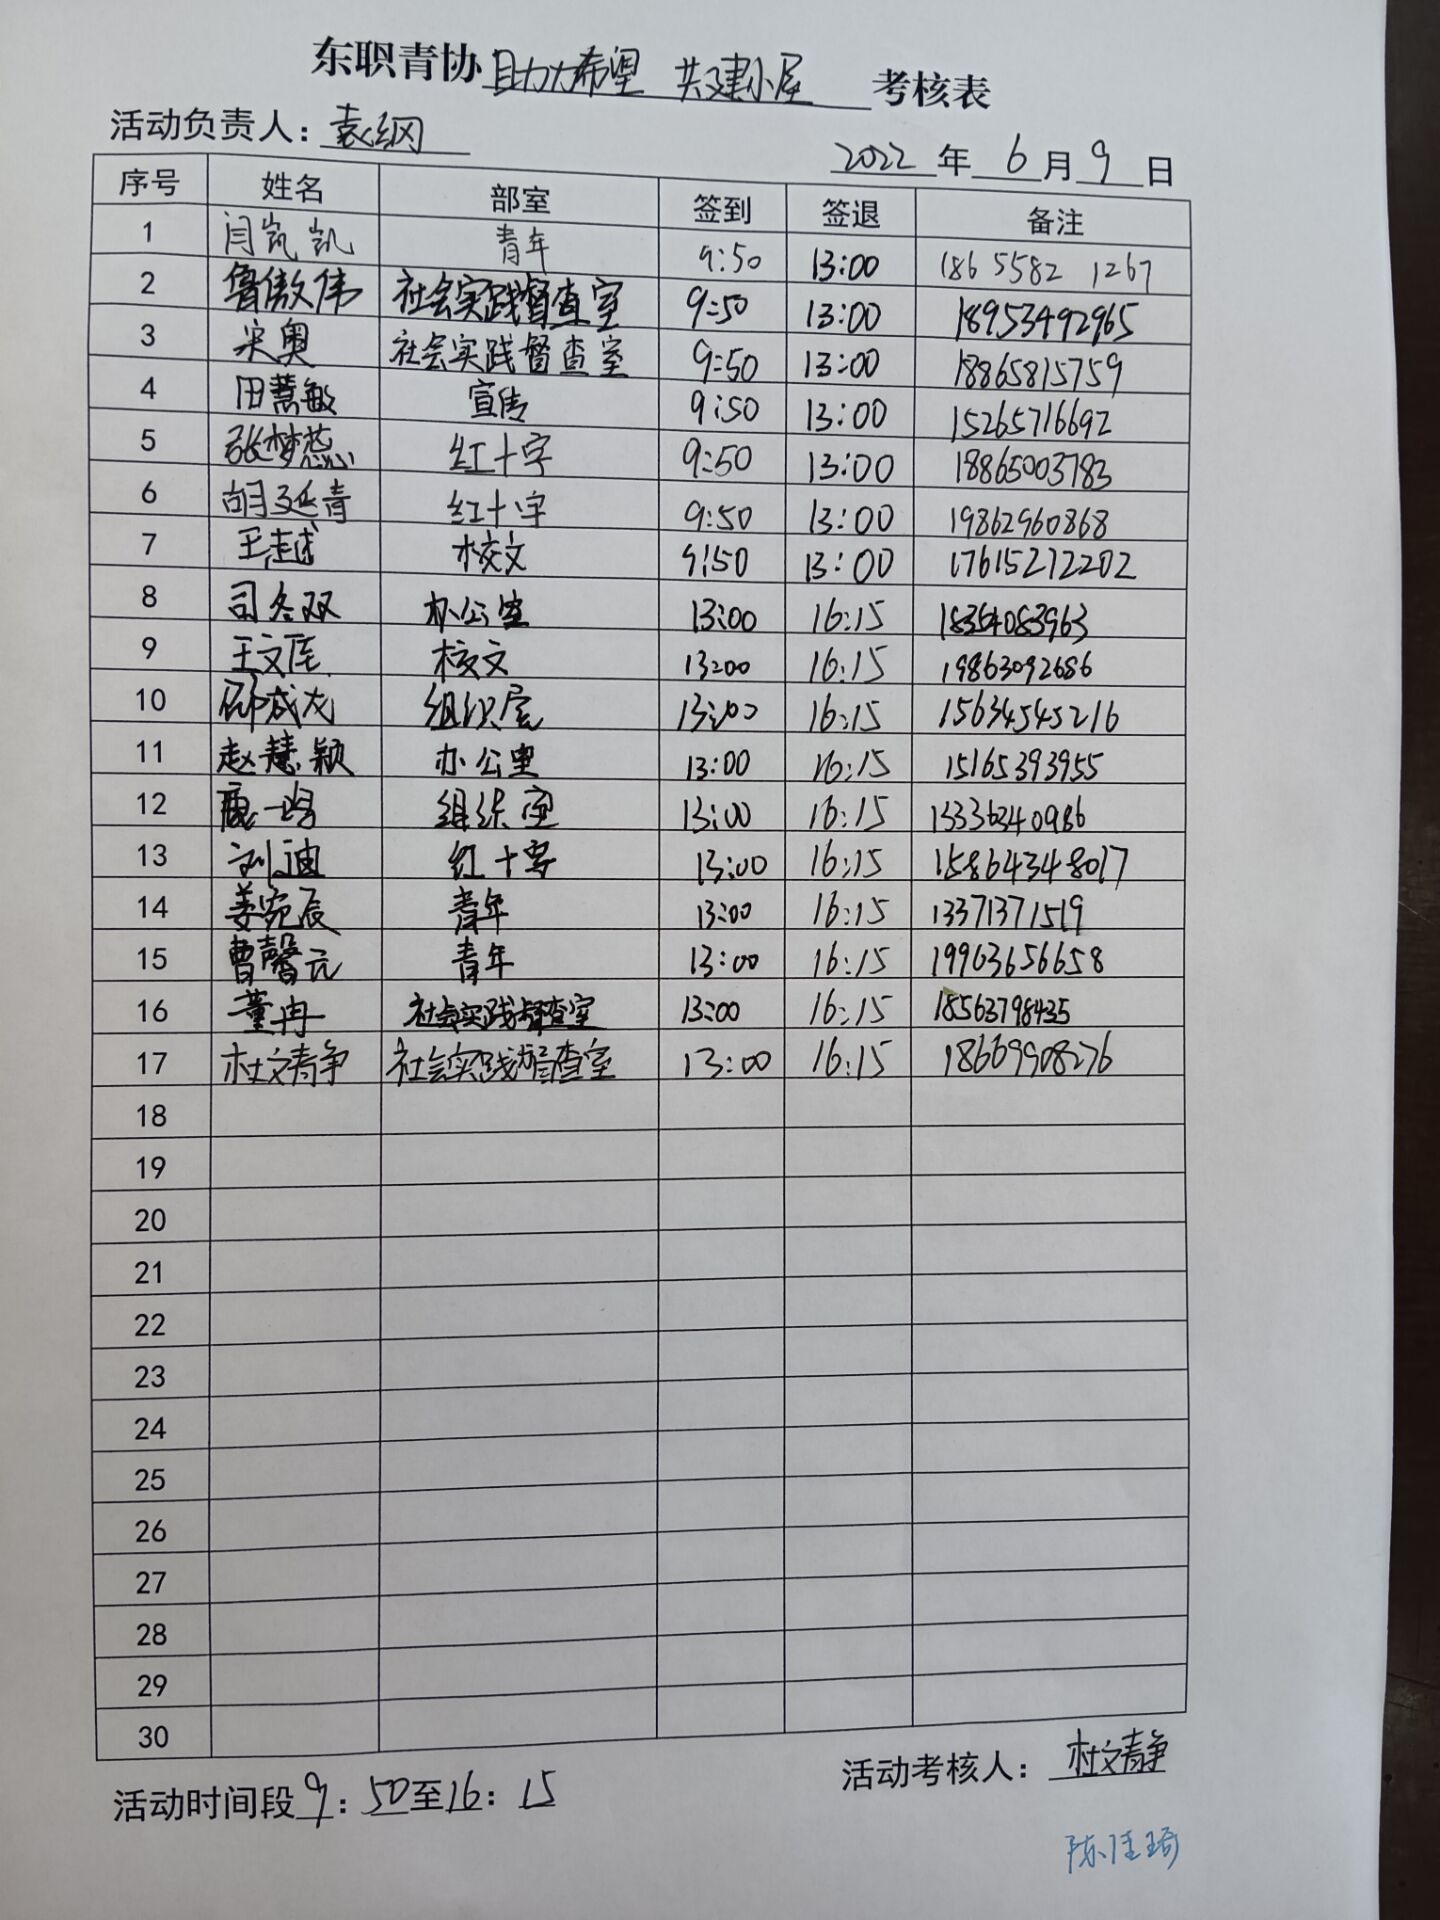 东职青协助力希望 共建小屋考核表
活动负责人：袁纲
2022年6月9日
序号 姓名 部室 签到 签退 备注
1 闫凯凯 青年 9:50 13:00 186 5582 1267
2 鲁傲伟 社会实践督查室 9:50 13:00 18953492965
3 宋奥 社会实践督查室 9:50 13:00 18865815759
4 田慧敏 宣传 9:50 13:00 15265716692
5 张梦蕊 红十字 9:50 13:00 18865003783
6 胡延青 红十字 9:50 13:00 19862960868
7 王越 校文 9:50 13:00 17615272202
8 司冬双 办公室 13:00 16:15 18354083963
9 王文 校文 13:00 16:15 19863092686
10 邵成龙 组织室 13:00 16:15 15634545216
11 赵慧颖 办公室 13:00 16:15 15165393955
12 鹿一鸣 组织室 13:00 16:15 13336340986
13 刘迪 红十字 13:00 16:15 15864348017
14 姜宛辰 青年 13:00 16:15 13371371519
15 曹馨元 青年 13:00 16:15 19963656658
16 董冉 社会实践督查室 13:00 16:15 18563798435
17 杜文静 社会实践督查室 13:00 16:15 18669908276
18
19
20
21
22
23
24
25
26
27
28
29
30
活动时间段9：50至16：15
活动考核人：杜文静
陈佳琦